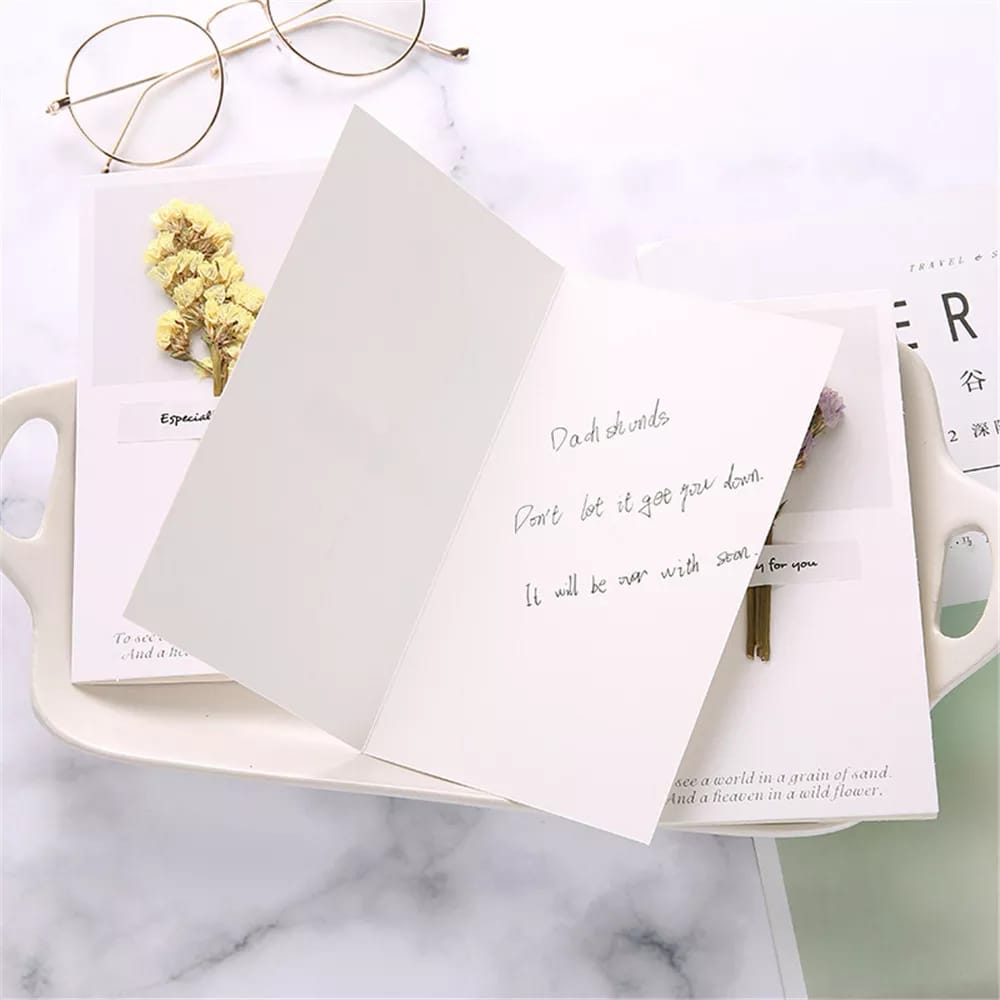 TRAVEL & S
ER
谷
2 深
Especial
Dachshunds
Don't let it get you down.
It will be over with soon.
y for you
To see
And a hea
see a world in a grain of sand.
And a heaven in a wild flower.